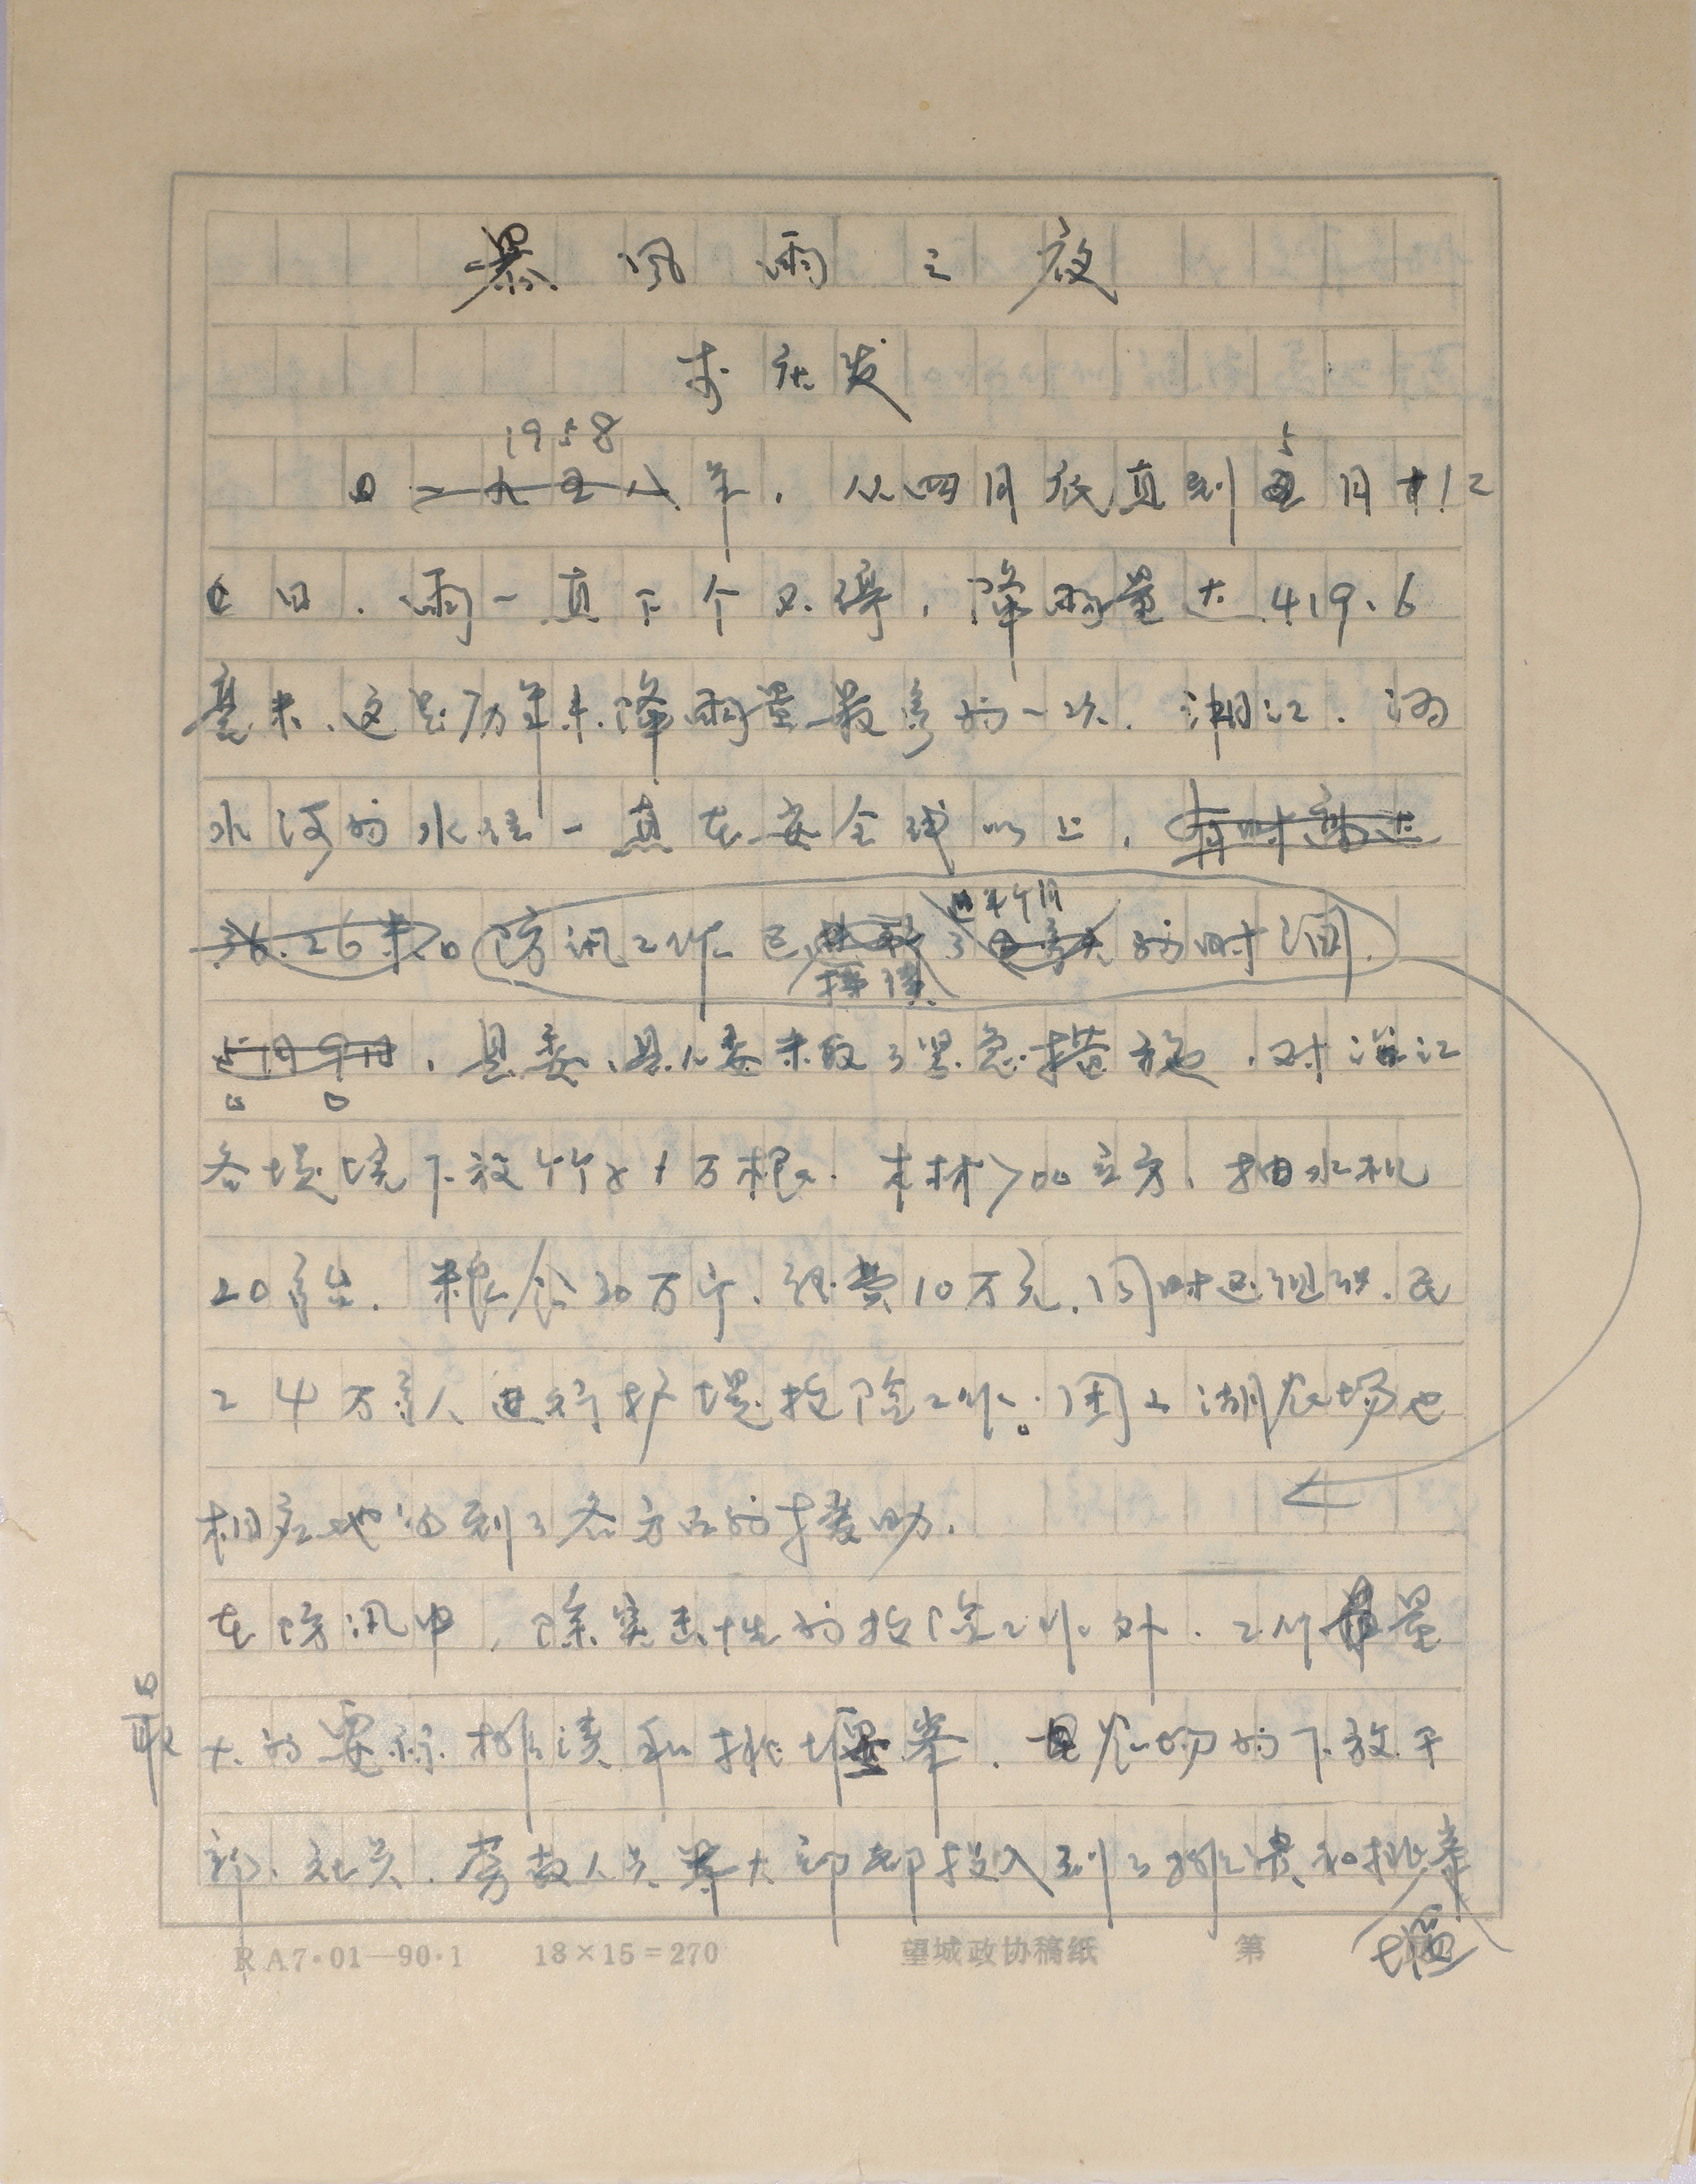 暴风雨之夜
李社发
1958
5
一九五八年，从四月底直到五月十12
日，雨一直下个不停，降雨量达419.6
毫米，这是历年来降雨量最多的一次，湘江、沩
水河的水位一直在安全线以上，有时高达
36.26米。防汛工作已持续了近半个月的时间，
5月9日，县委、县人委采取了紧急措施，对沿江
各堤垸下放竹子1万根，木材700立方，抽水机
20多台，粮食30万斤，经费10万元，同时还组织民
工4万多人进行护堤抢险工作。团山湖农场也
相应地得到了各方面的援助。
在防汛中，除突击性的抢险工作外，工作量
最
大的要称排渍和挑堰拳，县农场的下放干
部、社员、劳教人员大部都投入到了排渍和挑拳
堰
RA7·01—90·1 18×15=270 望城政协稿纸 第